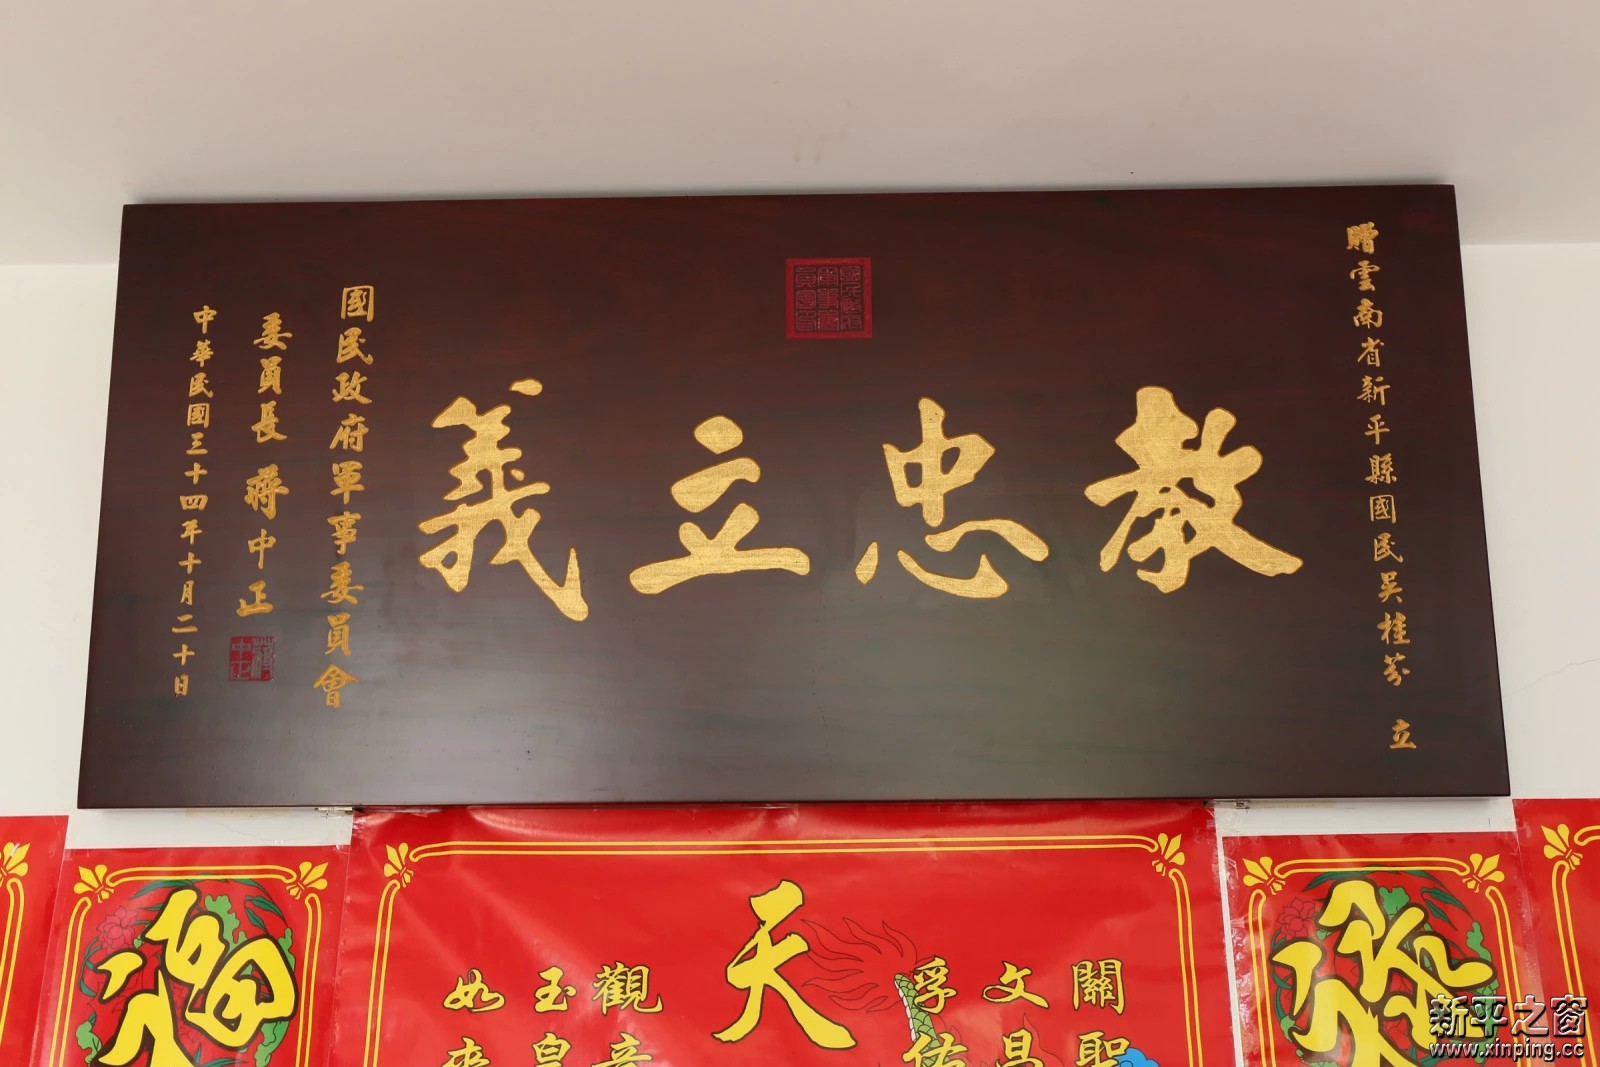 贈雲南省新平縣國民吳桂芬 立
教忠立義
國民政府軍事委員會
委員長 蔣中正
中華民國三十四年十月二十日
蔣中正
福
關聖
文昌
孚佑
天
觀音
玉皇
如來
祿
新平之窗
www.xinping.cc